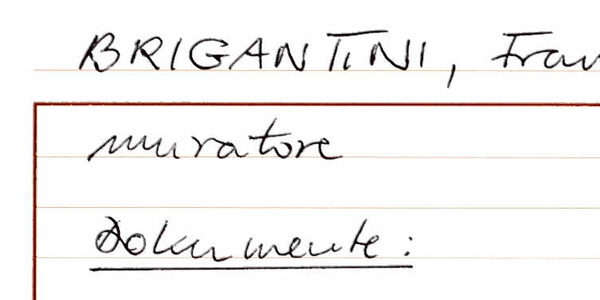 BRIGANTINI, Fran
muratore
Dokumente: